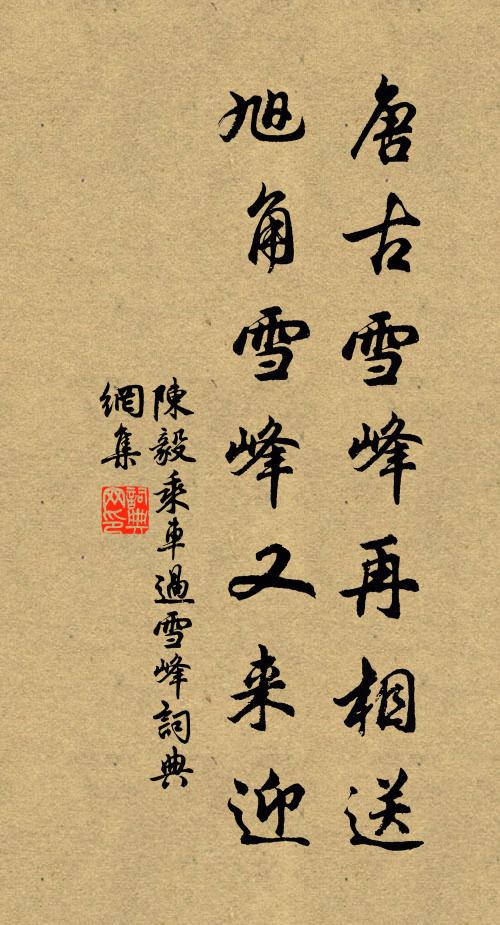 唐古雪峰再相送
旭角雪峰又来迎
陳毅乘車過雪峰詞典
網集
詞典
网印